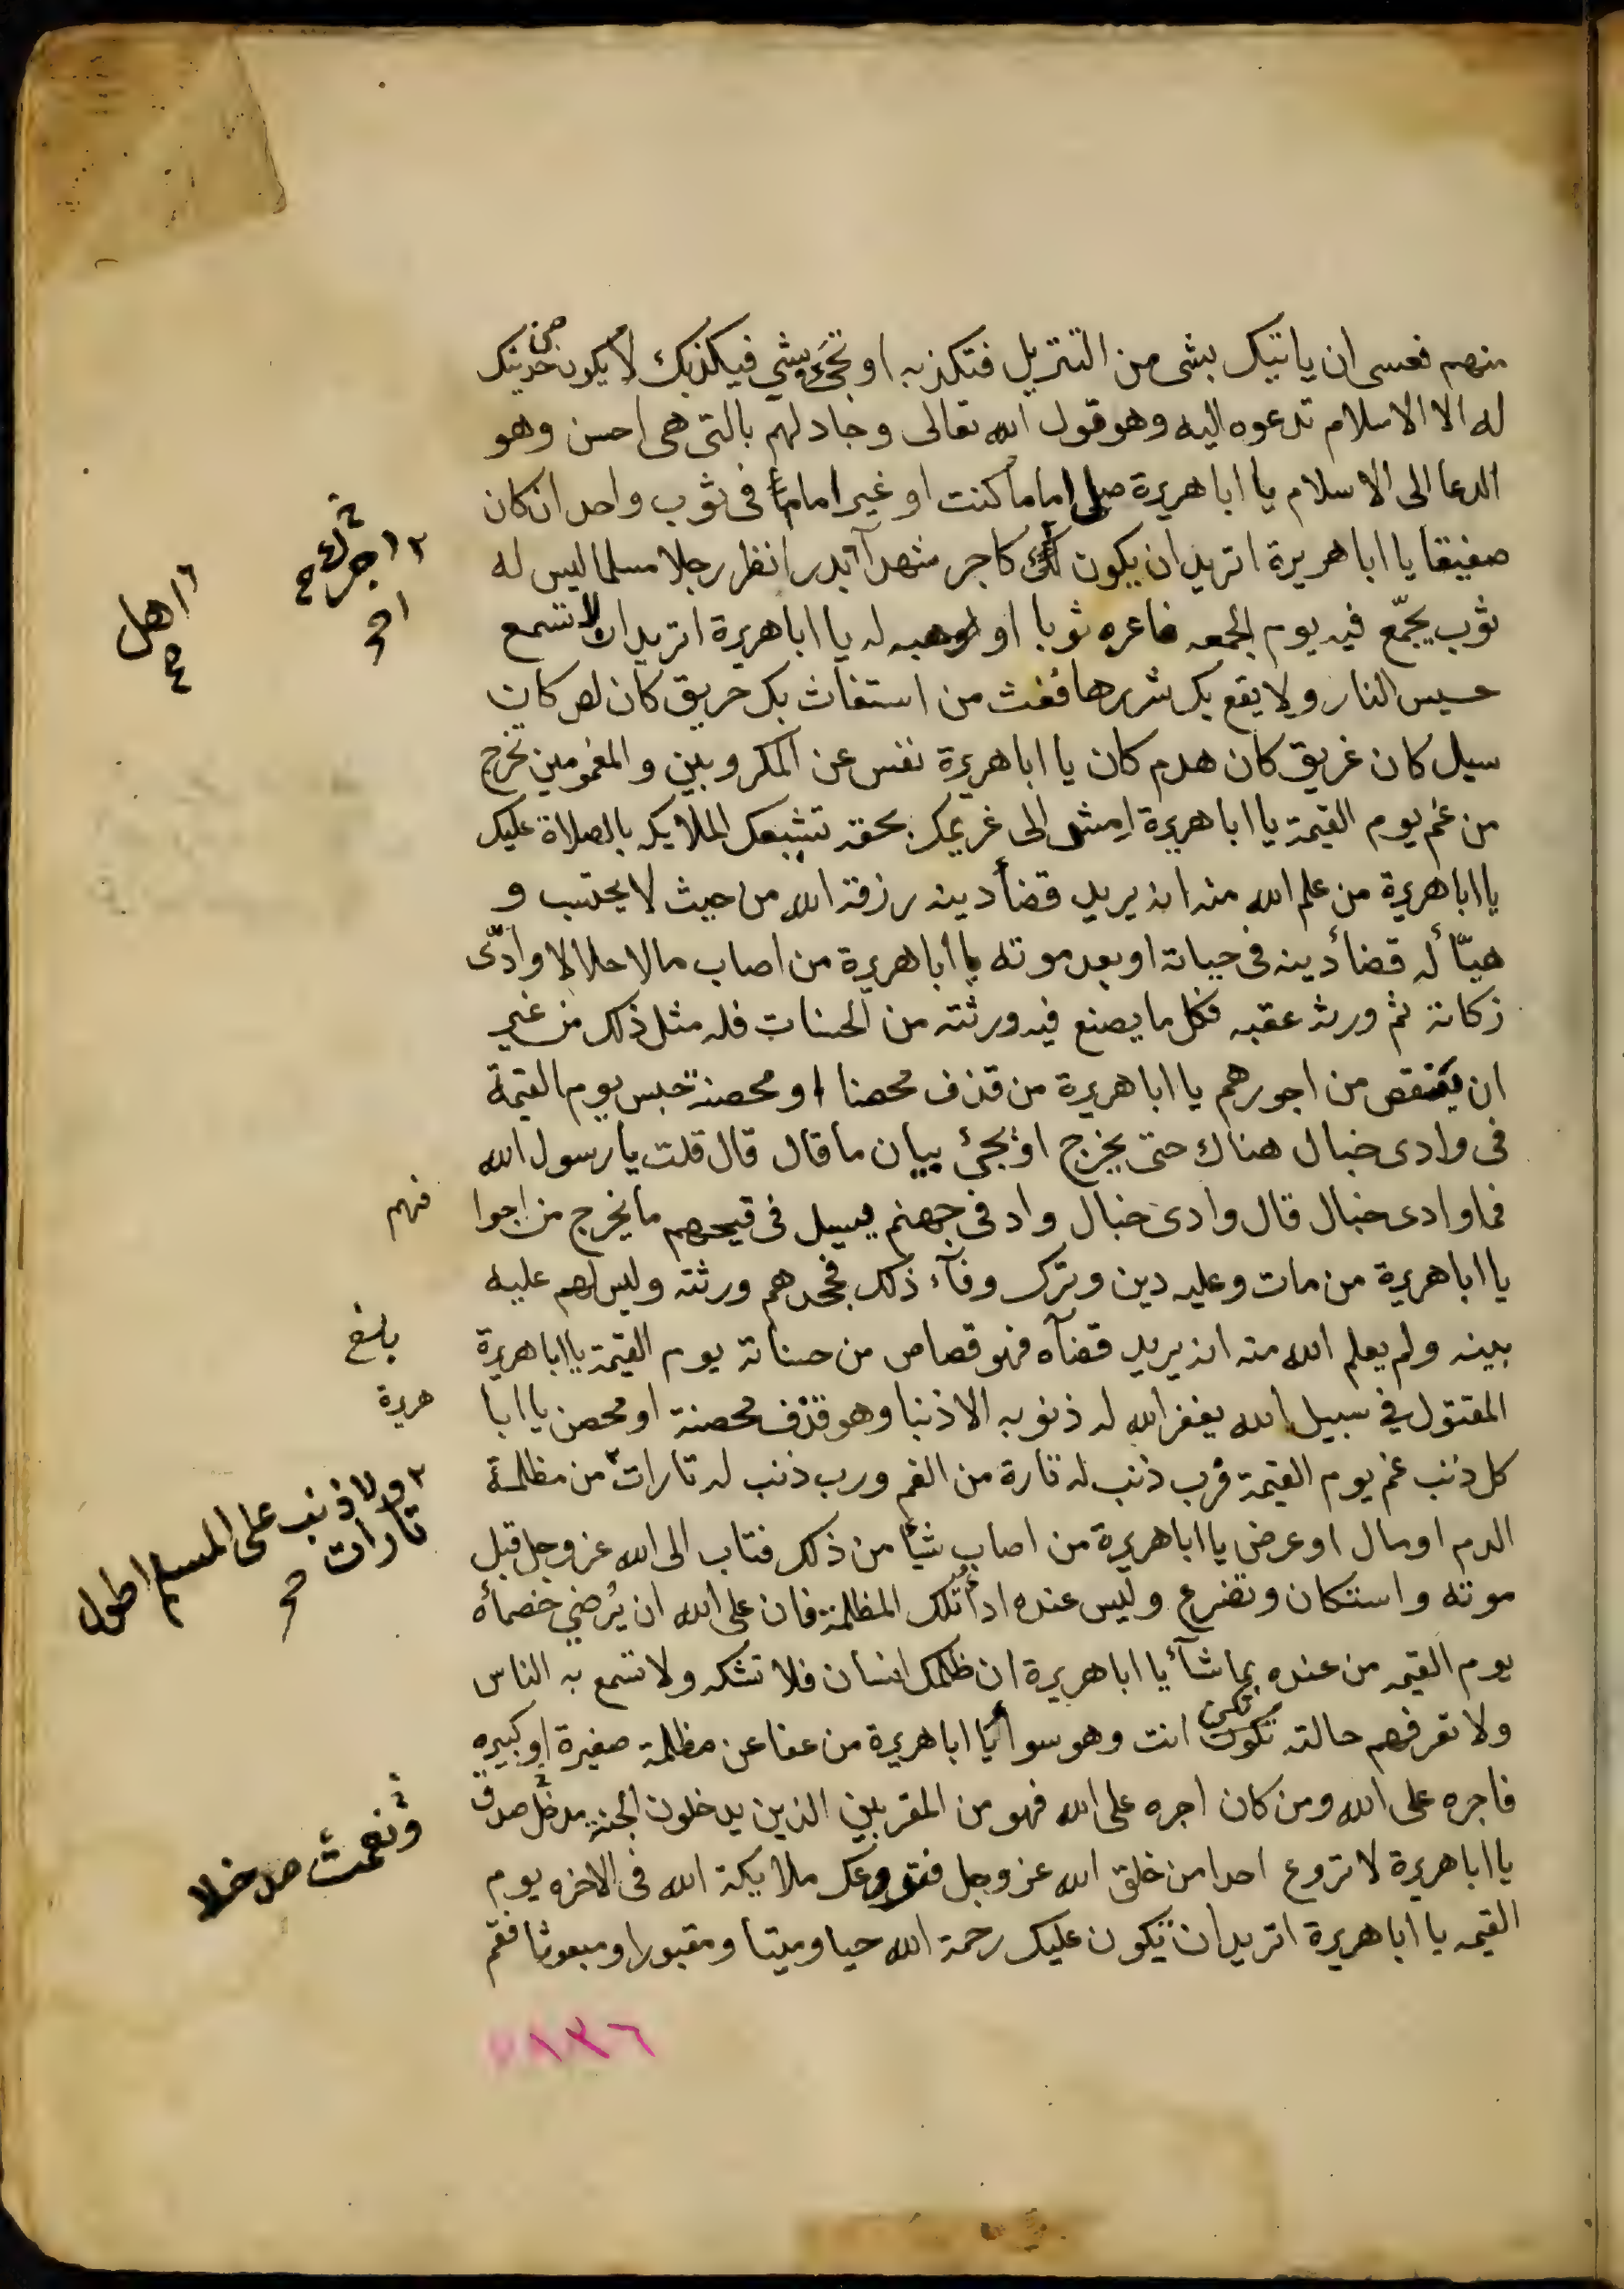 منهم فعسى ان ياتيك بشى من التنزيل فتكذبه او تجئ بشي فيكذبك لا يكون من حديثك
له الا الاسلام تدعوه اليه وهو قول الله تعالى وجادلهم بالتى هى احسن وهو
الدعا الى الاسلام يا ابا هريرة صل اماما كنت او غير امام فى ثوب واحد ان كان
صفيقا يا ابا هريرة اتريد ان يكون لك كاجر شهدآ بدر انظر رجلا مسلما ليس له
ثوب يجمّع فيه يوم الجمعه فاعره ثوبا او اوهبه له يا ابا هريرة اتريد ان لا تسمع
حسيس النار ولا يقع بك شررها فغث من استغاث بك حريق كان لص كان
سيل كان غريق كان هدم كان يا ابا هريرة نفس عن المكروبين و المغمومين تخرج
من غم يوم القيمة يا ابا هريرة امش الى غريمك بحقه تشيعك الملايكه بالصلاة عليك
يا ابا هريرة من علم الله منه انه يريد قضأ دينه رزقه الله من حيث لا يحتسب و
هيّأ له قضأ دينه فى حياته او بعد موته يا ابا هريرة من اصاب مالا حلالا وادّى
زكاته ثم ورثه عقبه فكل ما يصنع فيه ورثته من الحسنات فله مثل ذلك من غير
ان ينقص من اجورهم يا ابا هريرة من قذف محصنا او محصنة حبس يوم القيمة
فى وادى خبال هناك حتى يخرج او يجئ ببيان ما قال قال قلت يا رسول الله
فما وادى خبال قال وادى خبال واد فى جهنم يسيل فى قيحهم ما يخرج من اجوا
فهم
يا ابا هريرة من مات وعليه دين وترك وفآء ذلك فجحدهم ورثته وليس لهم عليه
بينه ولم يعلم الله منه انه يريد قضآه فهو قصاص من حسناته يوم القيمة يا ابا هريرة
المقتول في سبيل الله يغفر الله له ذنوبه الا ذنبا وهو قذف محصنة او محصن يا ابا
هريرة
كل ذنب غم يوم القيمة فرب ذنب له تارة من الغم ورب ذنب له تارات من مظلمة
الدم او مال او عرض يا ابا هريرة من اصاب شيأ من ذلك فتاب الى الله عز وجل قبل
موته واستكان وتضرع وليس عنده ادأ تلك المظلمة فان على الله ان يُرضي خصمأه
يوم القيمه من عنده بما شآء يا ابا هريرة ان ظلمك انسان فلا تشكه ولا تسمع به الناس
ولا تعرفهم حالته تكون تكن انت وهو سوأ يا ابا هريرة من عفا عن مظلمة صغيرة او كبيره
فاجره على الله ومن كان اجره على الله فهو من المقربين الذين يدخلون الجنة مدخل صدق
يا ابا هريرة لا تروع احدا من خلق الله عز وجل فتروعك ملايكة الله فى الاخره يوم
القيمه يا ابا هريرة اتريد ان تكون عليك رحمة الله حيا وميتا ومقبورا ومبعوثا فقم
اجر
اهل
بلغ
ولا ذنب على المسلم اطول
تارات
مدخلا
١٣٦